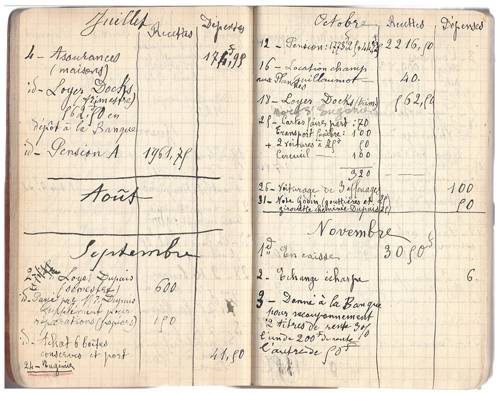 Juillet
Recettes
Dépenses
4 - Assurances
(maisons)
id - Loyer Docks
(2e trimestre)
562,50 en
dépôt à la Banque
id - Pension A
1961,75
Août
Septembre
Loyer Dupuis
(semestre)
600
Payé par Mr Dupuis
supplément pour
réparations (papiers)
150
id - Achat 6 boîtes
conserves et port
41,50
24 -
Octobre
Recettes
Dépenses
12 - Pension:
2216,50
16 - Location champ
aux Planches Guillaumot
40.
18 - Loyer Docks (trim)
562,50
25 - Cartes faire part: 70
Transport
100
2 voitures à 25f
50
Cercueil
100
320
26 - Voiturage de 3 affouages
100
31 - Note Gobin (gouttières et
girouette cheminée Dupuis)
50
Novembre
1er En caisse
3050
2 - Echange écharpe
6.
3 - Donné à la Banque
pour recouponnement
2 titres de rente
l'un de 200f de rente
l'autre de 50f